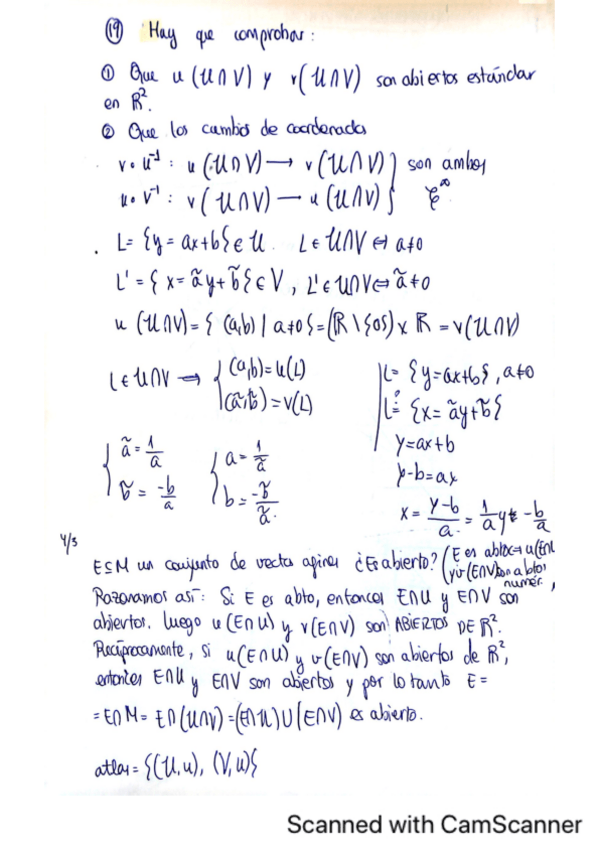 (19) Hay que comprobar:
① Que u(U∩V) y v(U∩V) son abiertos estándar
en R².
② Que los cambios de coordenada
v∘u⁻¹: u(U∩V) → v(U∩V) } son ambos
u∘v⁻¹: v(U∩V) → u(U∩V) } C^∞
. L={y=ax+b}∈U. L∈U∩V ⇔ a≠0
L'={x=ãy+b̃}∈V, L'∈U∩V ⇔ ã≠0
u(U∩V)={(a,b)| a≠0}=(R\{0})×R=v(U∩V)
L∈U∩V → { (a,b)=u(L)
(ã,b̃)=v(L)
L={y=ax+b}, a≠0
L={x=ãy+b̃}
y=ax+b
y-b=ax
x=(y-b)/a=1/a y + -b/a
{ ã=1/a
b̃=-b/a
{ a=1/ã
b=-b̃/ã.
4/3
E⊆M un conjunto de rectas afines ¿Es abierto? (E es abto ⇔ u(E∩U
y v(E∩V) son abtos
numér.,
Razonamos así: Si E es abto, entonces E∩U y E∩V son
abiertos. luego u(E∩U) y v(E∩V) son ABIERTOS DE R².
Recíprocamente, si u(E∩U) y v(E∩V) son abiertos de R²,
entonces E∩U y E∩V son abiertos y por lo tanto E=
=E∩M= E∩(U∩V)=(E∩U)∪(E∩V) es abierto.
atlas={(U,u), (V,u)}
Scanned with CamScanner